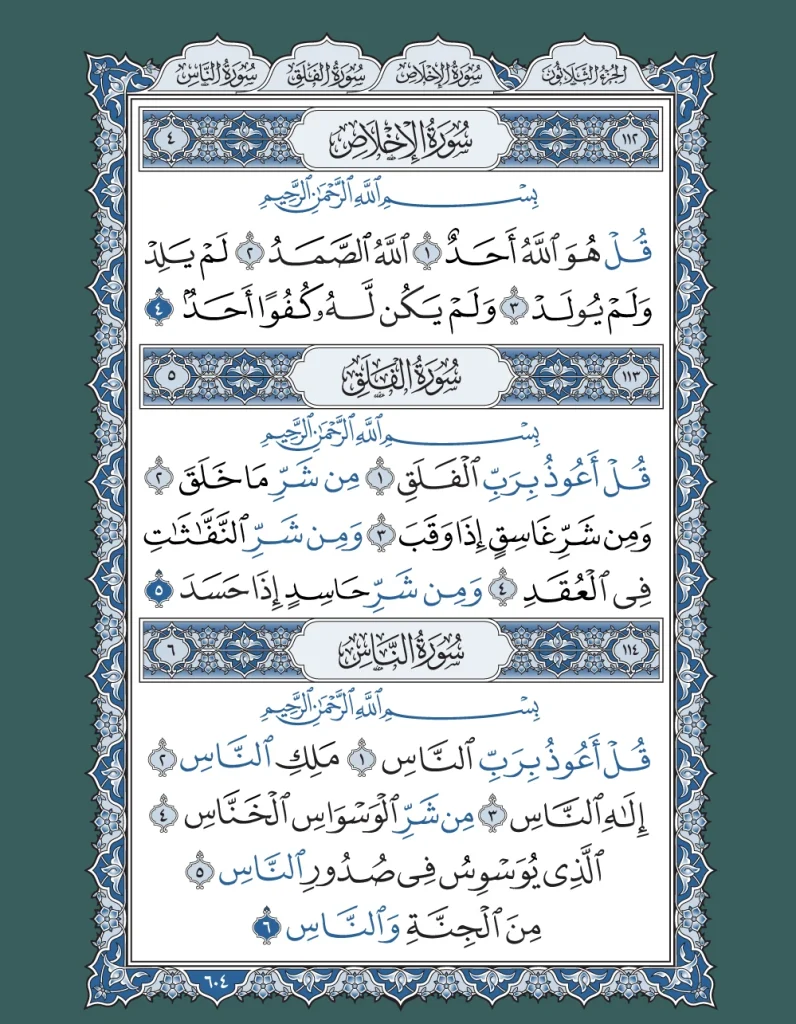 الجزء الثلاثون سورة الإخلاص سورة الفلق سورة الناس
١١٢ سُورَةُ الإِخْلَاصِ ٤
بِسْمِ ٱللَّهِ ٱلرَّحْمَٰنِ ٱلرَّحِيمِ
قُلْ هُوَ ٱللَّهُ أَحَدٌ ١ ٱللَّهُ ٱلصَّمَدُ ٢ لَمْ يَلِدْ
وَلَمْ يُولَدْ ٣ وَلَمْ يَكُن لَّهُۥ كُفُوًا أَحَدٌۢ ٤
١١٣ سُورَةُ الفَلَقِ ٥
بِسْمِ ٱللَّهِ ٱلرَّحْمَٰنِ ٱلرَّحِيمِ
قُلْ أَعُوذُ بِرَبِّ ٱلْفَلَقِ ١ مِن شَرِّ مَا خَلَقَ ٢
وَمِن شَرِّ غَاسِقٍ إِذَا وَقَبَ ٣ وَمِن شَرِّ ٱلنَّفَّٰثَٰتِ
فِى ٱلْعُقَدِ ٤ وَمِن شَرِّ حَاسِدٍ إِذَا حَسَدَ ٥
١١٤ سُورَةُ النَّاسِ ٦
بِسْمِ ٱللَّهِ ٱلرَّحْمَٰنِ ٱلرَّحِيمِ
قُلْ أَعُوذُ بِرَبِّ ٱلنَّاسِ ١ مَلِكِ ٱلنَّاسِ ٢
إِلَٰهِ ٱلنَّاسِ ٣ مِن شَرِّ ٱلْوَسْوَاسِ ٱلْخَنَّاسِ ٤
ٱلَّذِى يُوَسْوِسُ فِى صُدُورِ ٱلنَّاسِ ٥
مِنَ ٱلْجِنَّةِ وَٱلنَّاسِ ٦
٦٠٤